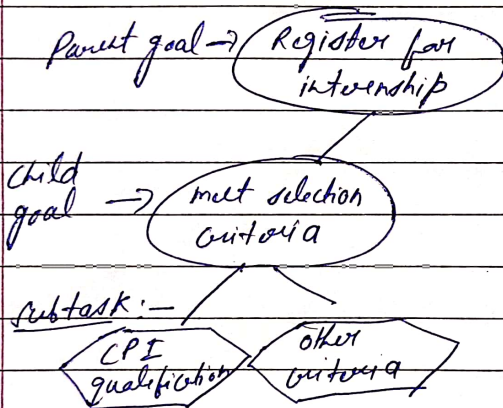 Parent goal → Register for
internship
Child
goal → meet selection
criteria
subtask:-
CPI
qualification
other
criteria